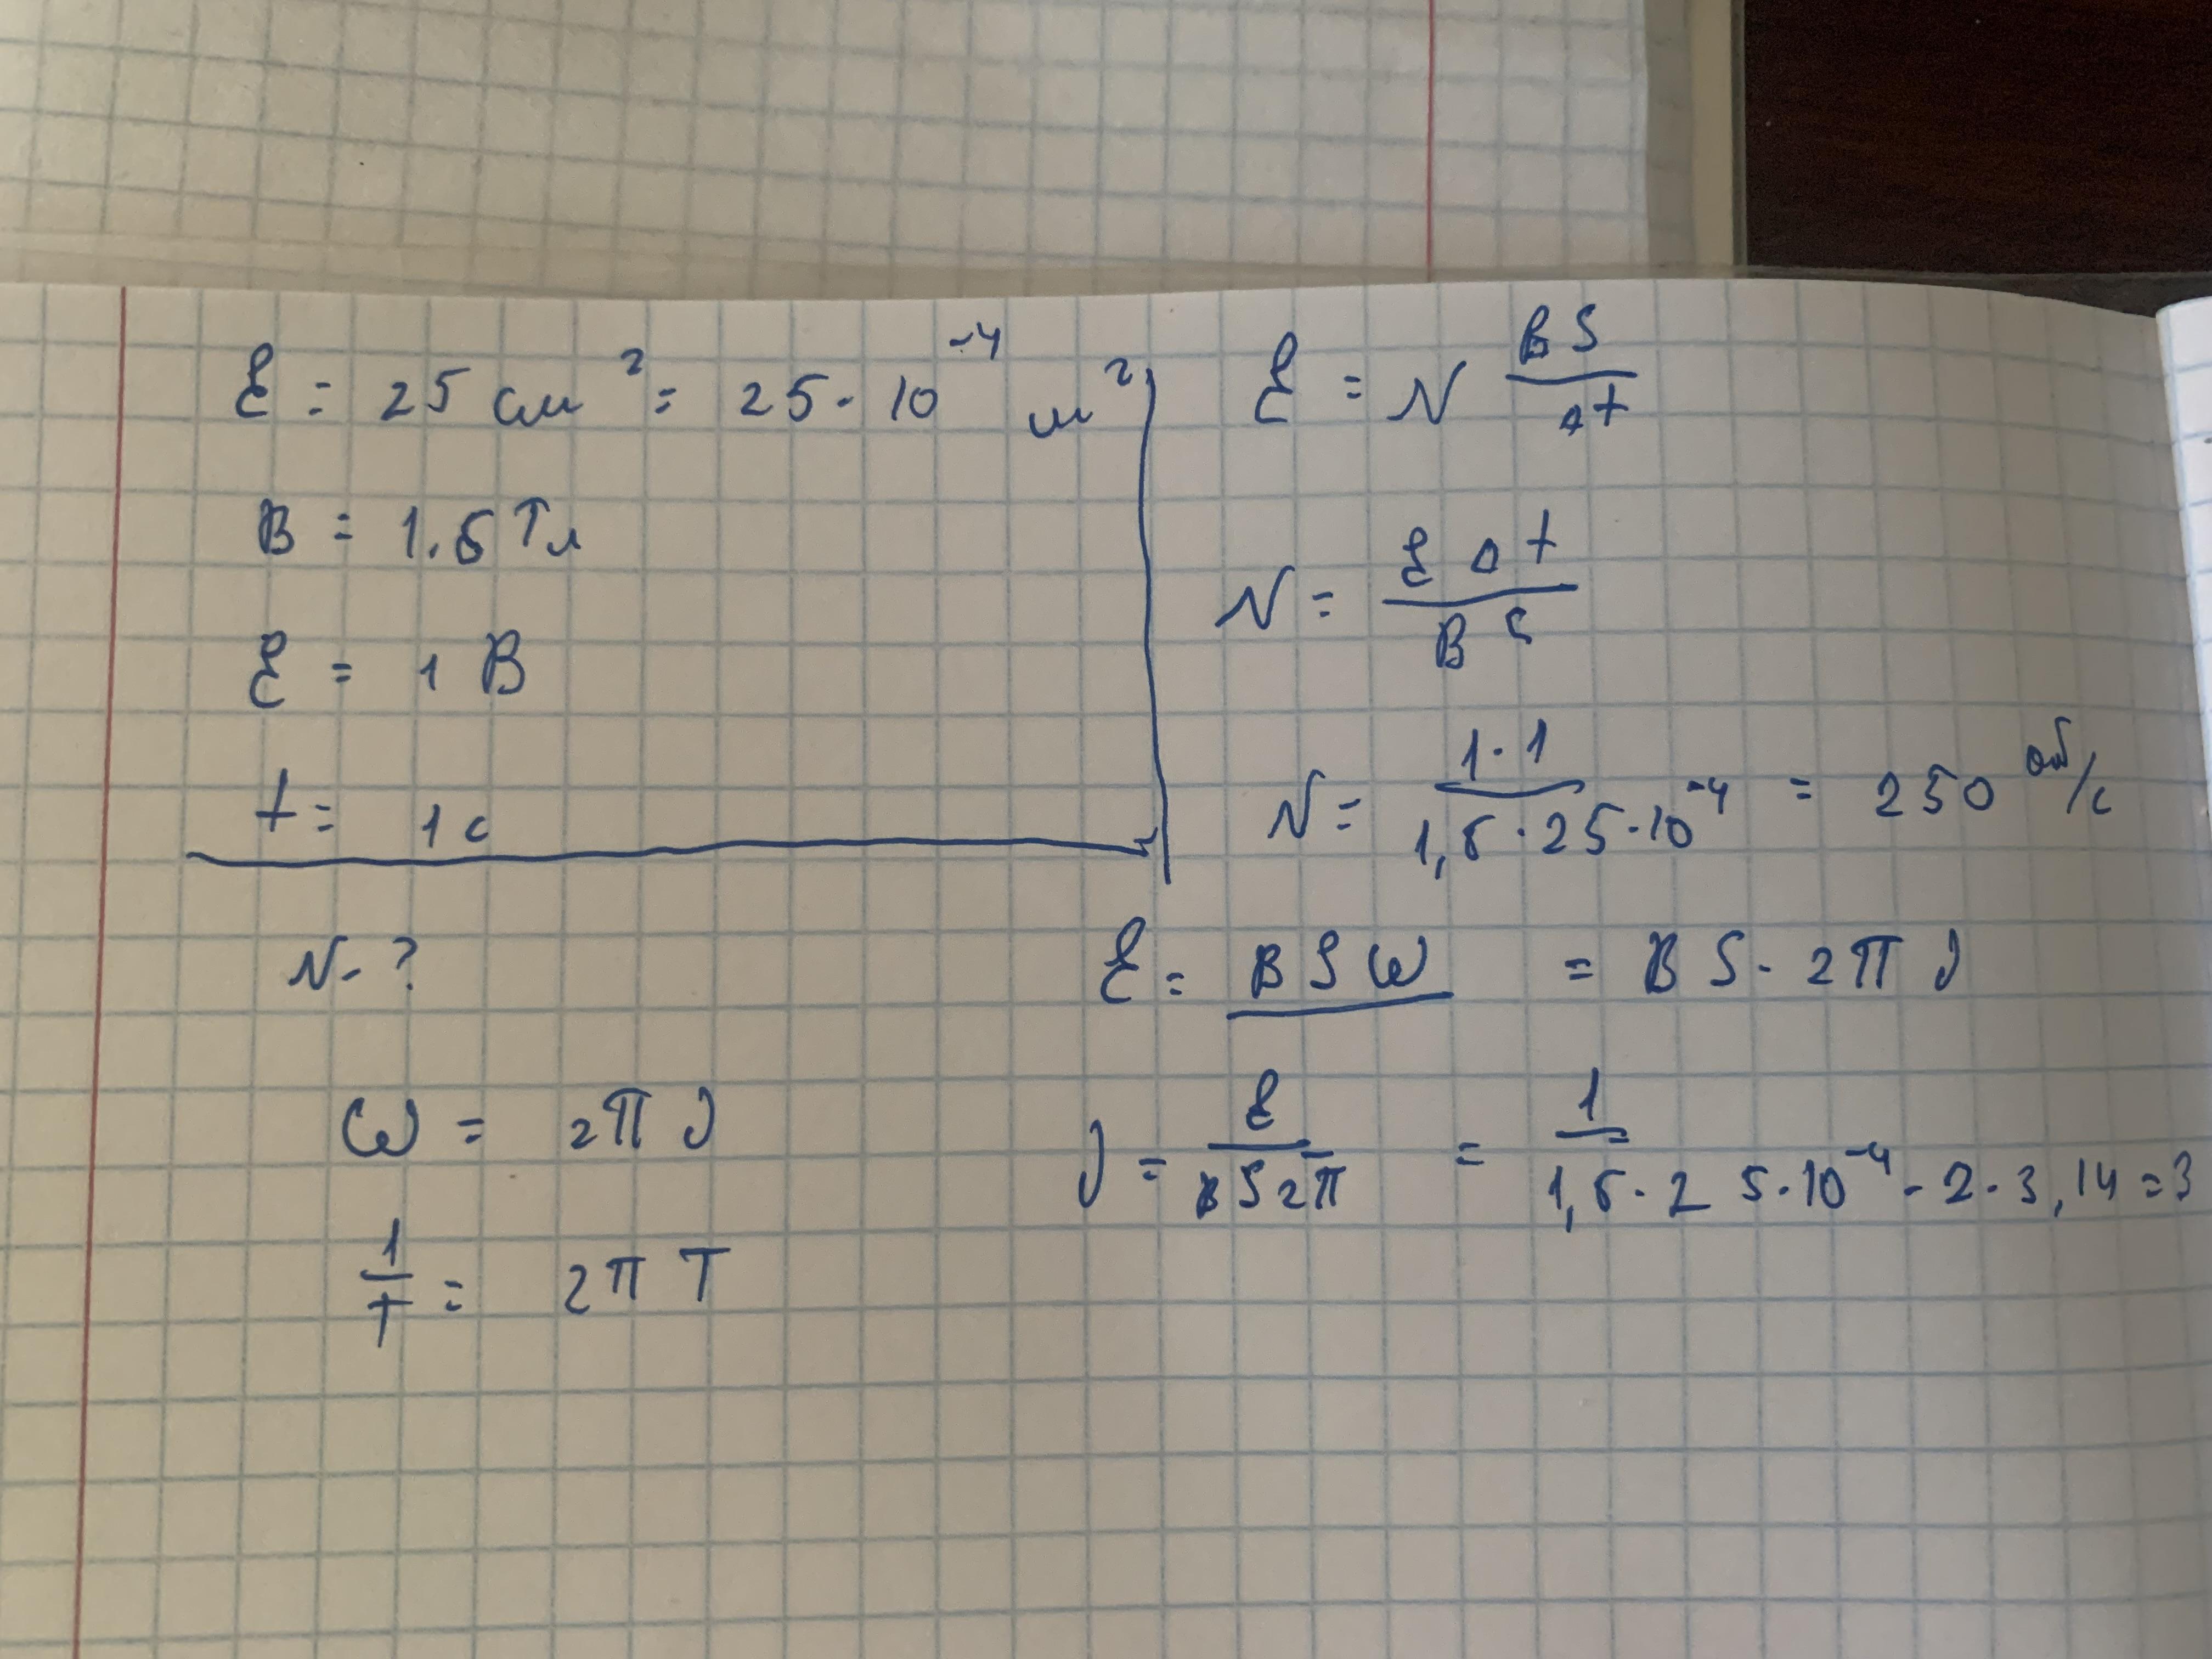 ℰ = 25 см² = 25 · 10⁻⁴ м²
B = 1.6 Тл
ℰ = 1 В
t = 1 с
N - ?
ω = 2π ν
1/T = 2π T
ℰ = N BS/Δt
N = ℰ Δt / B S
N = 1·1 / 1,6 · 25 · 10⁻⁴ = 250 об/с
ℰ = B S ω = B S · 2π ν
ν = ℰ / B S 2π = 1 / 1,6 · 25 · 10⁻⁴ · 2 · 3,14 = 3